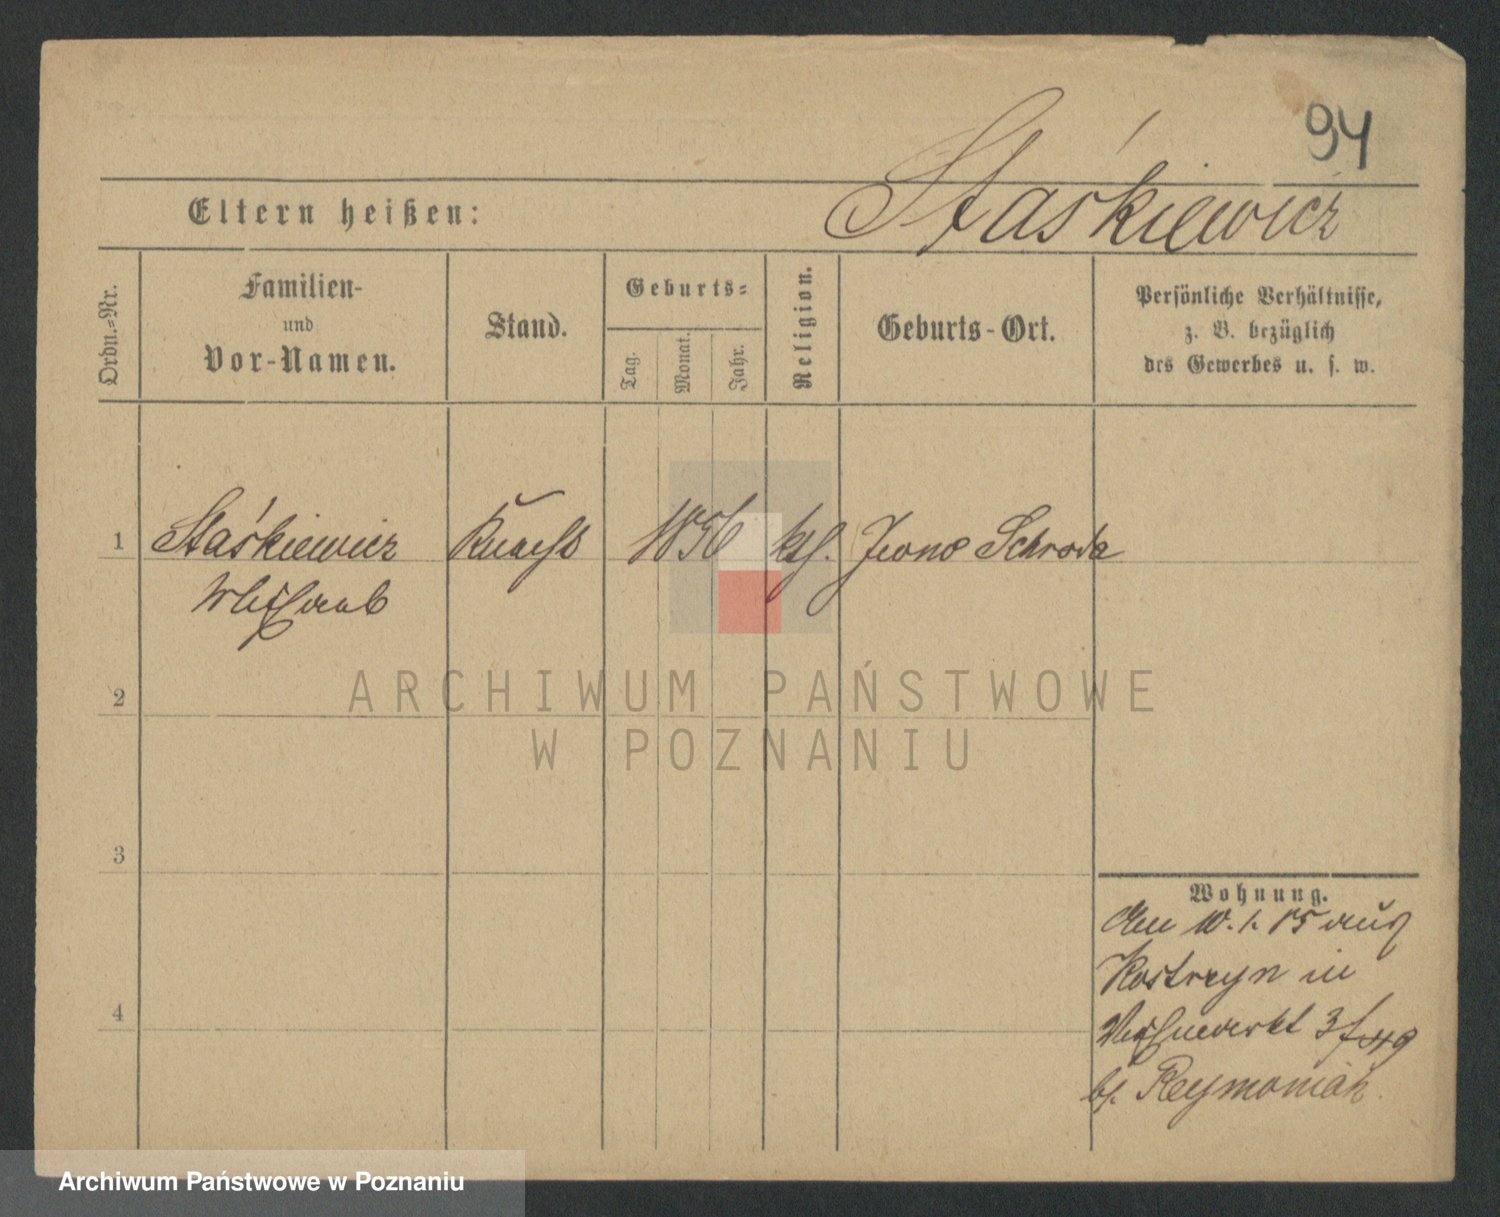 94
Staśkiewicz
Eltern heißen:
Ordn.=Nr.
Familien-
und
Vor-Namen.
Stand.
Geburts=
Tag.
Monat.
Jahr.
Religion.
Geburts-Ort.
Persönliche Verhältnisse,
z. B. bezüglich
des Gewerbes u. s. w.
1
Staśkiewicz
Knecht
1856
kth.
Schroda
2
3
4
ARCHIWUM PAŃSTWOWE
W POZNANIU
Wohnung.
Am 10. 1. 85 aus
Kostrzyn in
3
bei
Archiwum Państwowe w Poznaniu